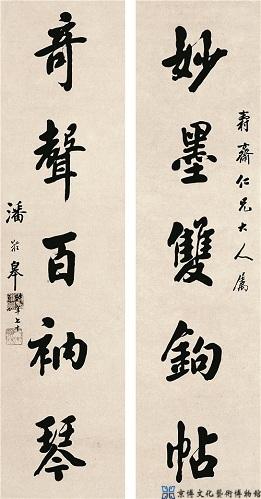 壽齋仁兄大人屬
妙墨雙鉤帖
奇聲百衲琴
潘齡皋
京博文化藝術博物館